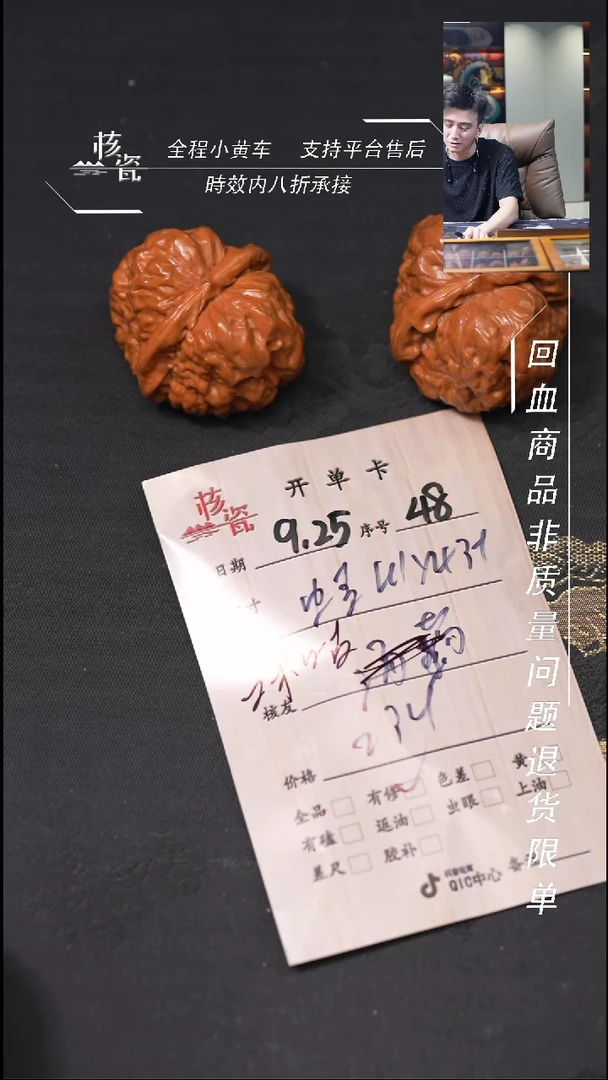 核瓷
全程小黄车 支持平台售后
時效内八折承接
回血商品非质量问题退货限单
核瓷
开单卡
日期 9.25 序号 48
寸
核友
234
价格
全品 有修 色差 黄
有磕 返油 虫眼 上油
差尺 胶补
QIC中心 备